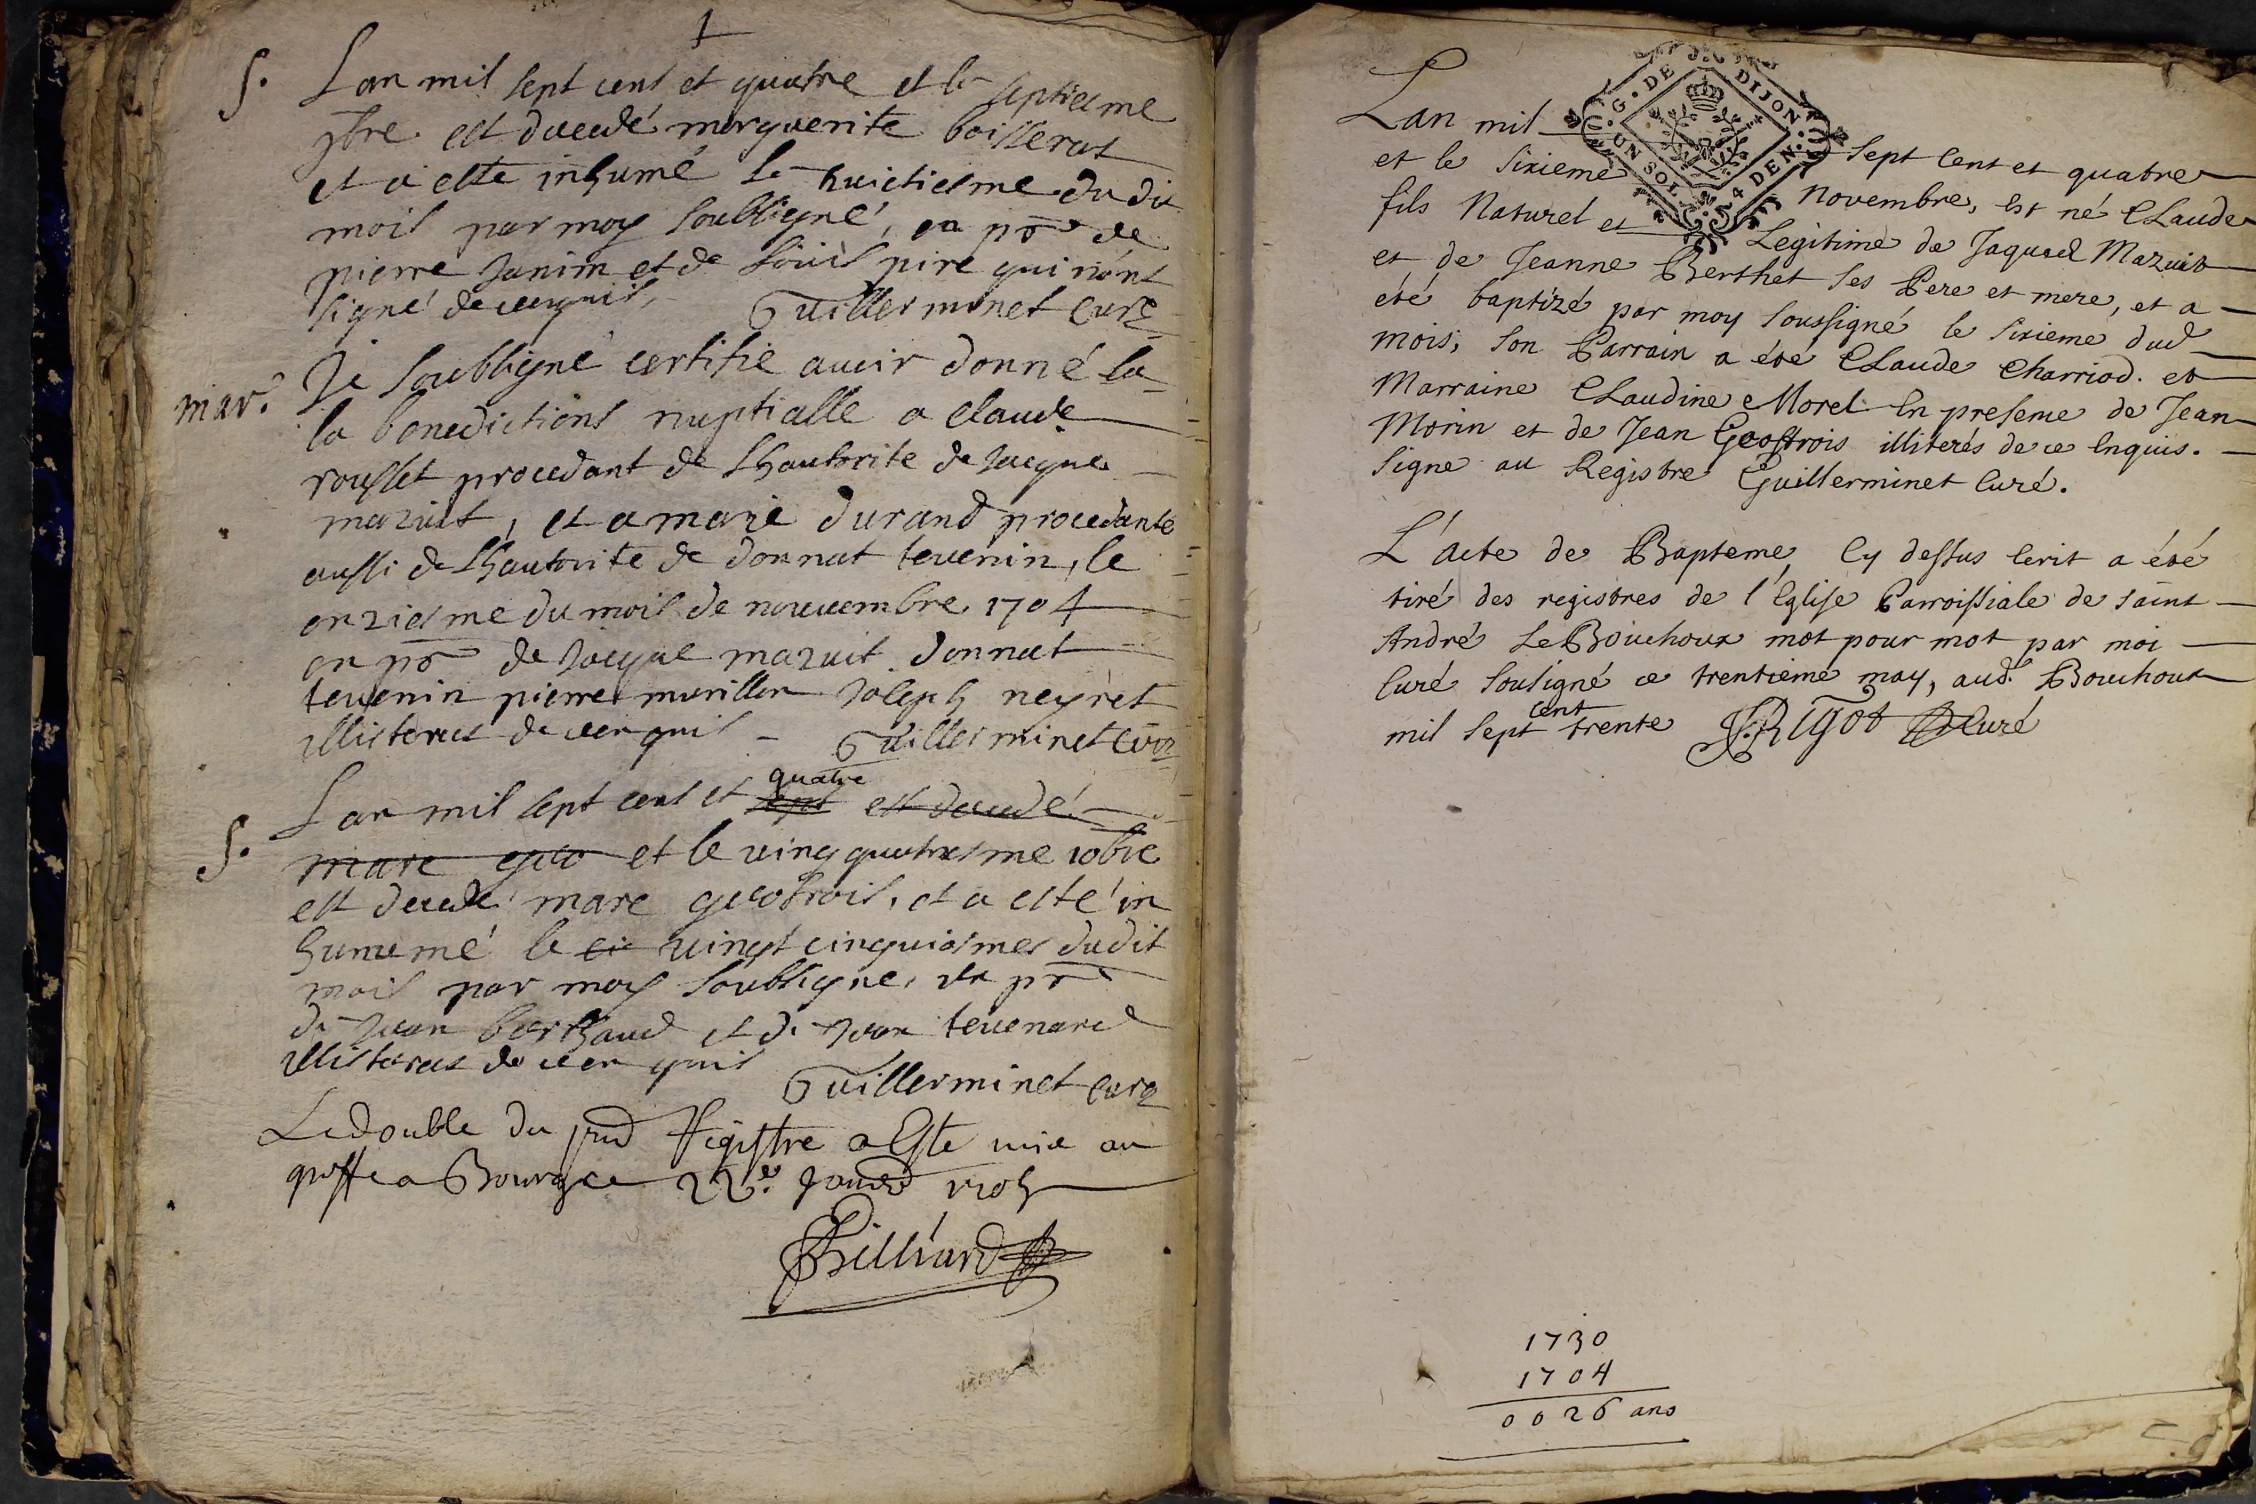 S. Lan mil sept cens et quatre et le septiesme
9bre est decedé marguerite boisserat
et a esté inhumé le huictiesme du dit
mois par moy soubsigné, en pñce de
pierre Janim et de Louis pire qui n'ont
signé de ce enquis, Guilleminet Curé
mar. Je soubsigné certifie avoir donné la
la benedictions nuptialle a claude
rousset procedant de Lhauthorite de Jacque
mazuit, et a marie durand procedante
aussi de Lhauthorite de donnat tevenin, le
onziesme du mois de nouvembre 1704
en pñce de Jacque mazuit donnat
tevenin pierre murillon Joseph neyret
illisterez de ce enquis - Guillerminet Curé
S. Lan mil sept cens et sept quatre est decedé
mare geo et le vingt quatriesme 10bre
est decedé mare geofrois, et a esté in
humemé le ci vingt cinquiesmes dudit
mois par moy soubsigne, en pñce
de Jean berthaud et de Jean tevenard
illisterez de ce enquis
Guillerminet Curé
Le double du pñd Registre a Esté mis au
greffe a Bourg ce 22e. Janvier 1705
Billiard
G. DE DIJON.
UN SOL 4 DEN.
Lan mil sept Cent et quatre
et le sixieme novembre, est né Claude
fils Naturel et Legitime de Jaques Mazuit
et de Jeanne Berthet ses Pere et mere, et a
été baptizé par moy soussigné le sixieme dud
mois; son Parrain a été Claude Charriod. et
Marraine Claudine Morel En presence de Jean
Morin et de Jean Geoffrois illiterés de ce Enquis.
signe au Registre Guillerminet Curé.
L'acte de Bapteme Cy dessus Ecrit a été
tiré des registres de l'Eglise Parroissiale de saint
André Le Bouchoux mot pour mot par moi
Curé sousigné ce trentieme may, aud. Bouchoux
mil sept cent trente J. Rigot Curé
1730
1704
0026 ans